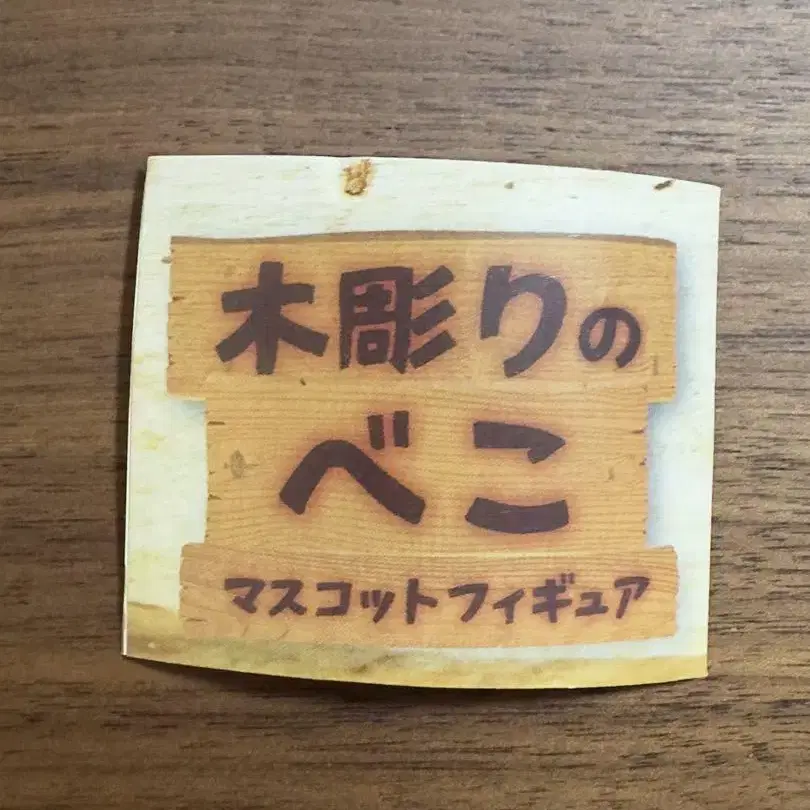 木彫りの
べこ
マスコットフィギュア